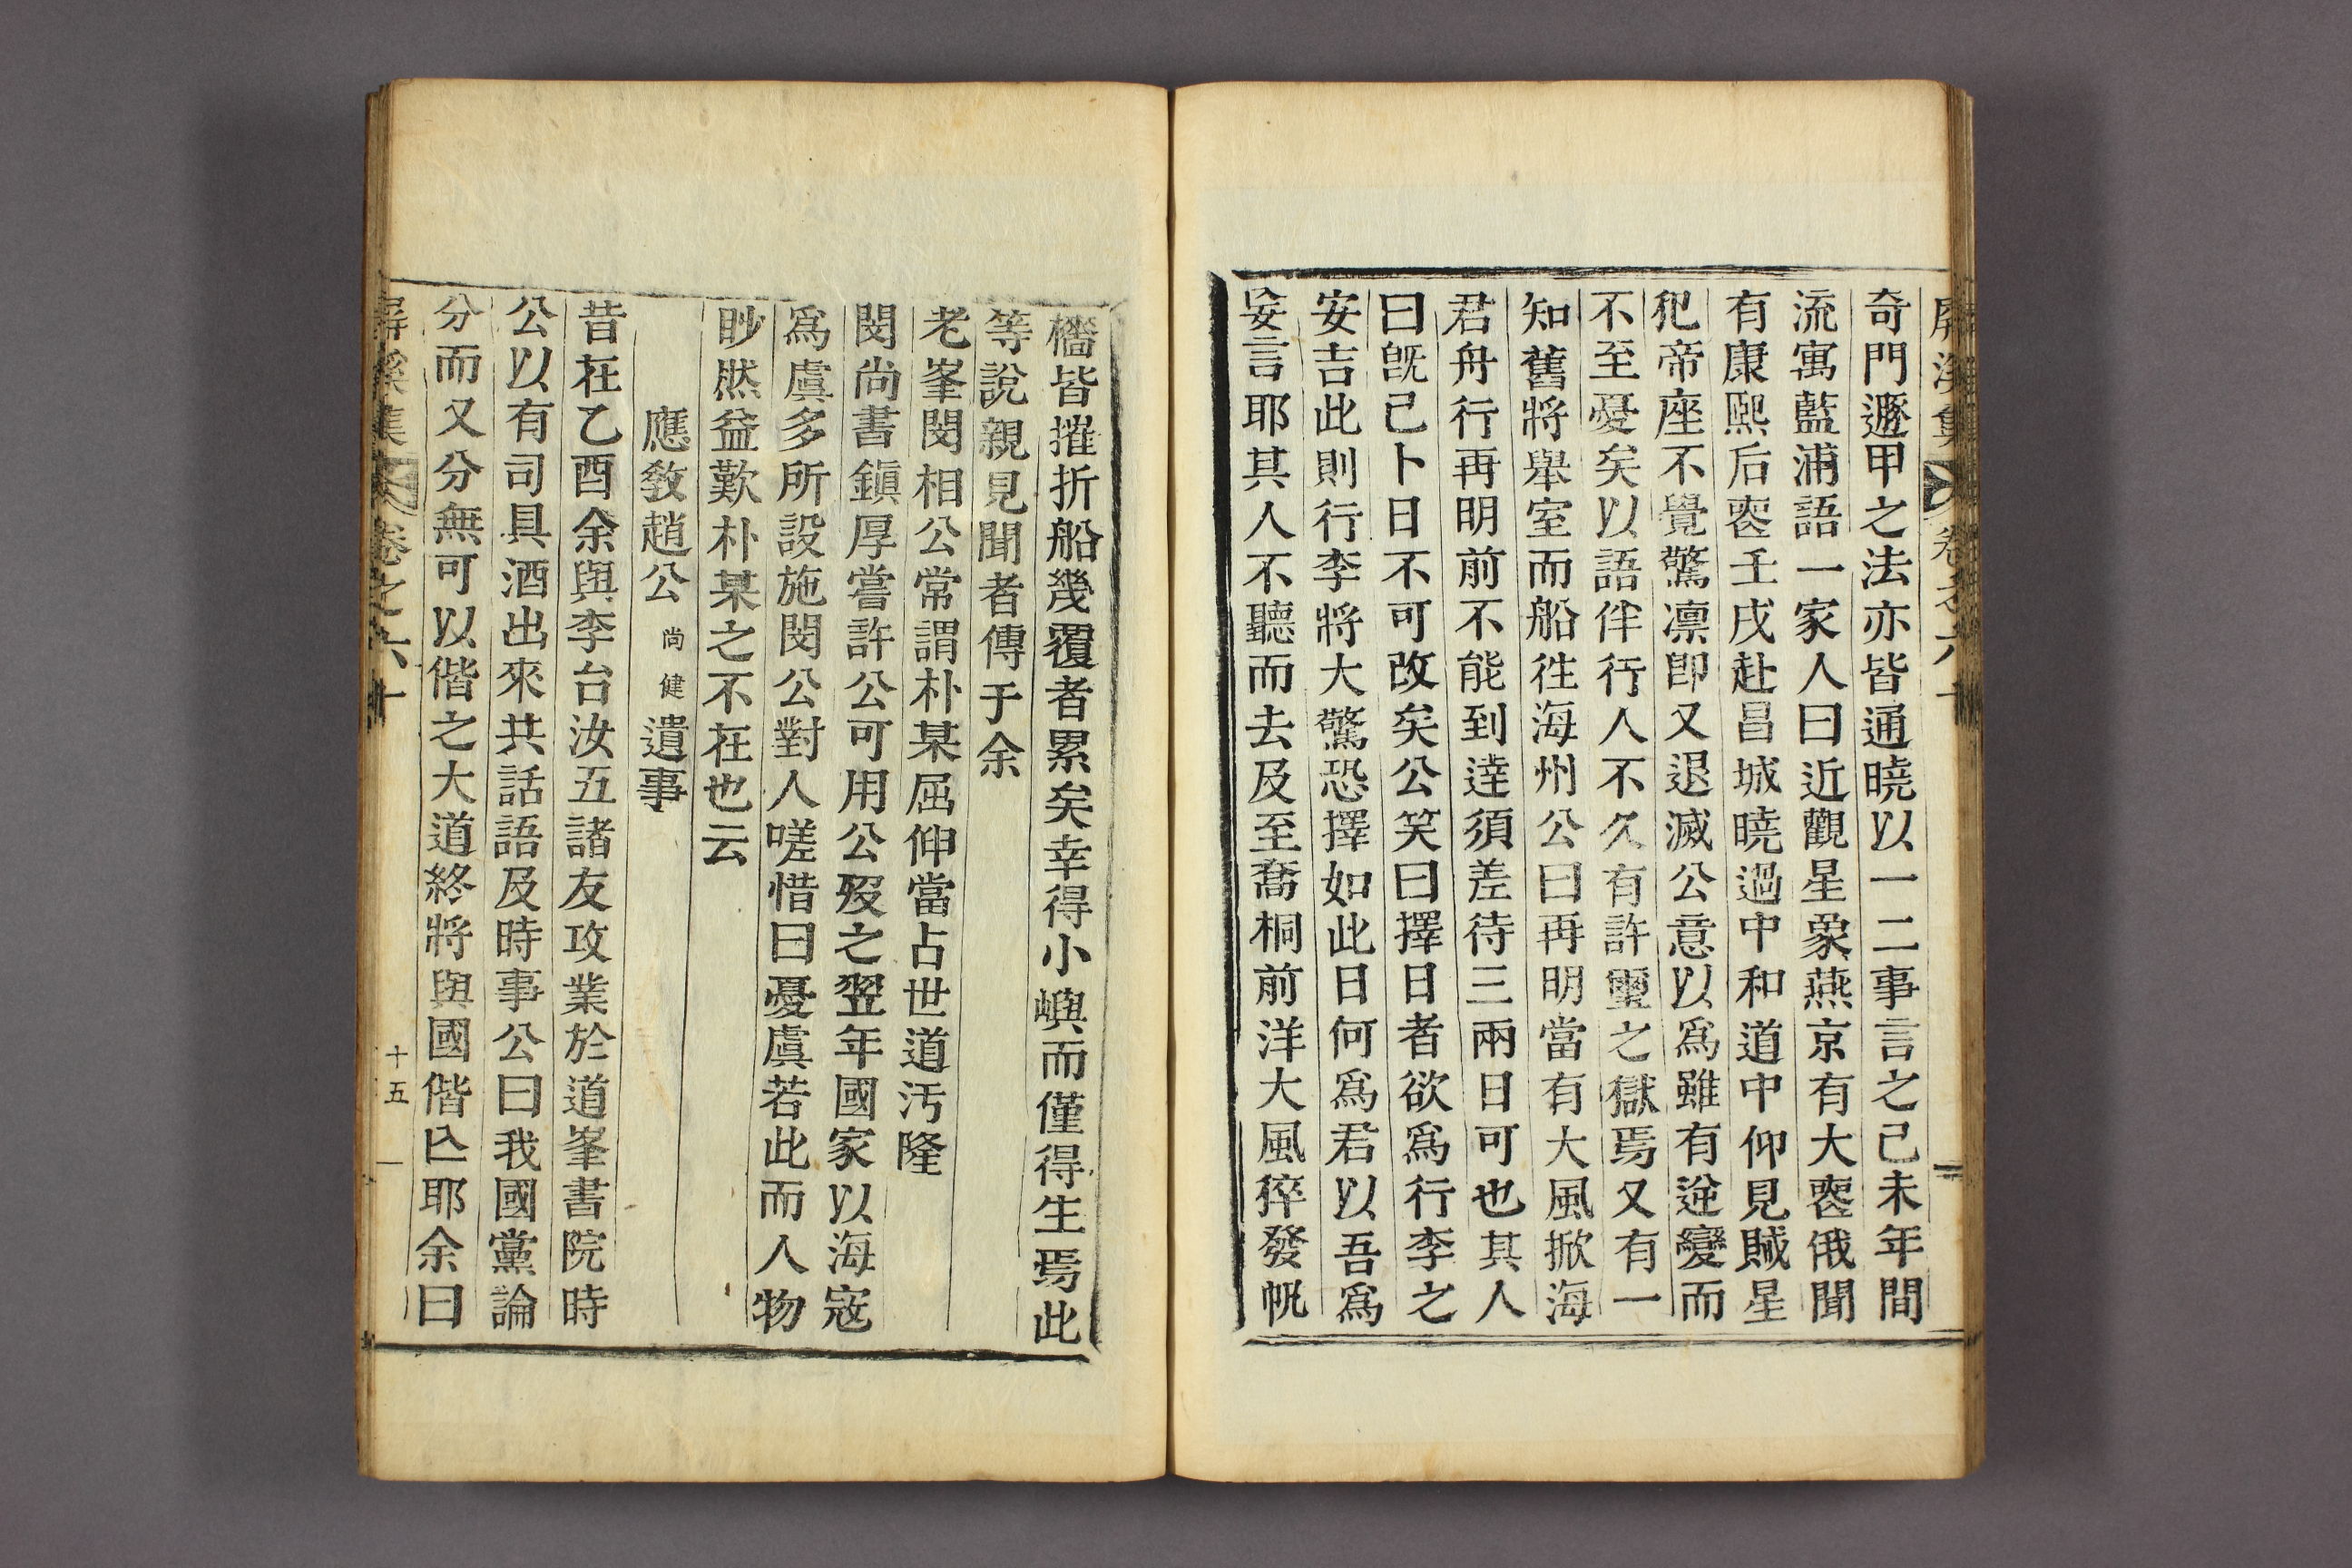 屏溪集 卷之六十
奇門遯甲之法亦皆通曉以一二事言之己未年間
流寓藍浦語一家人曰近觀星象燕京有大喪俄聞
有康熙后喪壬戌赴昌城曉過中和道中仰見賊星
犯帝座不覺驚凛卽又退滅公意以爲雖有逆變而
不至憂矣以語伴行人不久有許璽之獄焉又有一
知舊將舉室而船徃海州公曰再明當有大風掀海
君舟行再明前不能到達須差待三兩日可也其人
曰旣已卜日不可改矣公笑曰擇日者欲爲行李之
安吉此則行李將大驚恐擇如此日何爲君以吾爲
妄言耶其人不聽而去及至喬桐前洋大風猝發帆
檣皆摧折船幾覆者累矣幸得小嶼而僅得生焉此
等說親見聞者傳于余
老峯閔相公常謂朴某屈伸當占世道汚隆
閔尚書鎭厚嘗許公可用公歿之翌年國家以海寇
爲虞多所設施閔公對人嗟惜曰憂虞若此而人物
眇然益歎朴某之不在也云
應敎趙公尚健遺事
昔在乙酉余與李台汝五諸友攻業於道峯書院時
公以有司具酒出來共話語及時事公曰我國黨論
分而又分無可以偕之大道終將與國偕亾耶余曰
屏溪集 卷之六十 十五